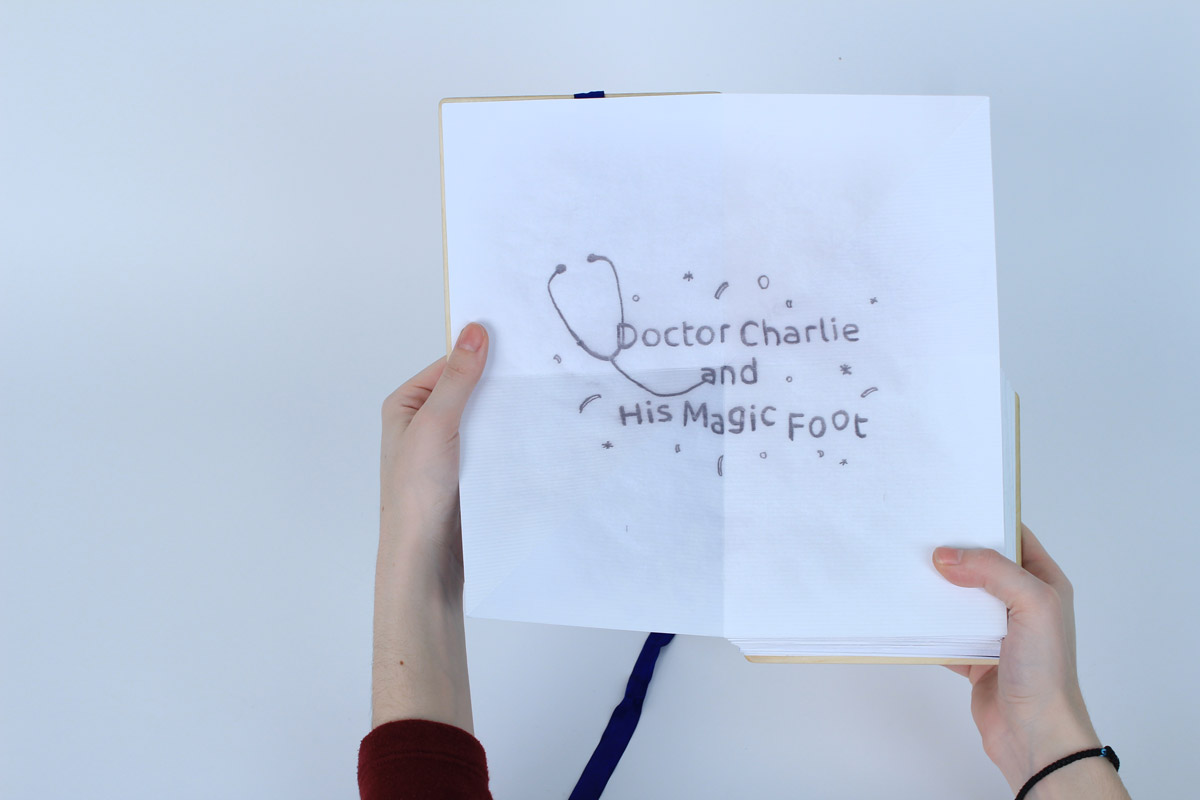 Doctor Charlie
and
His Magic Foot